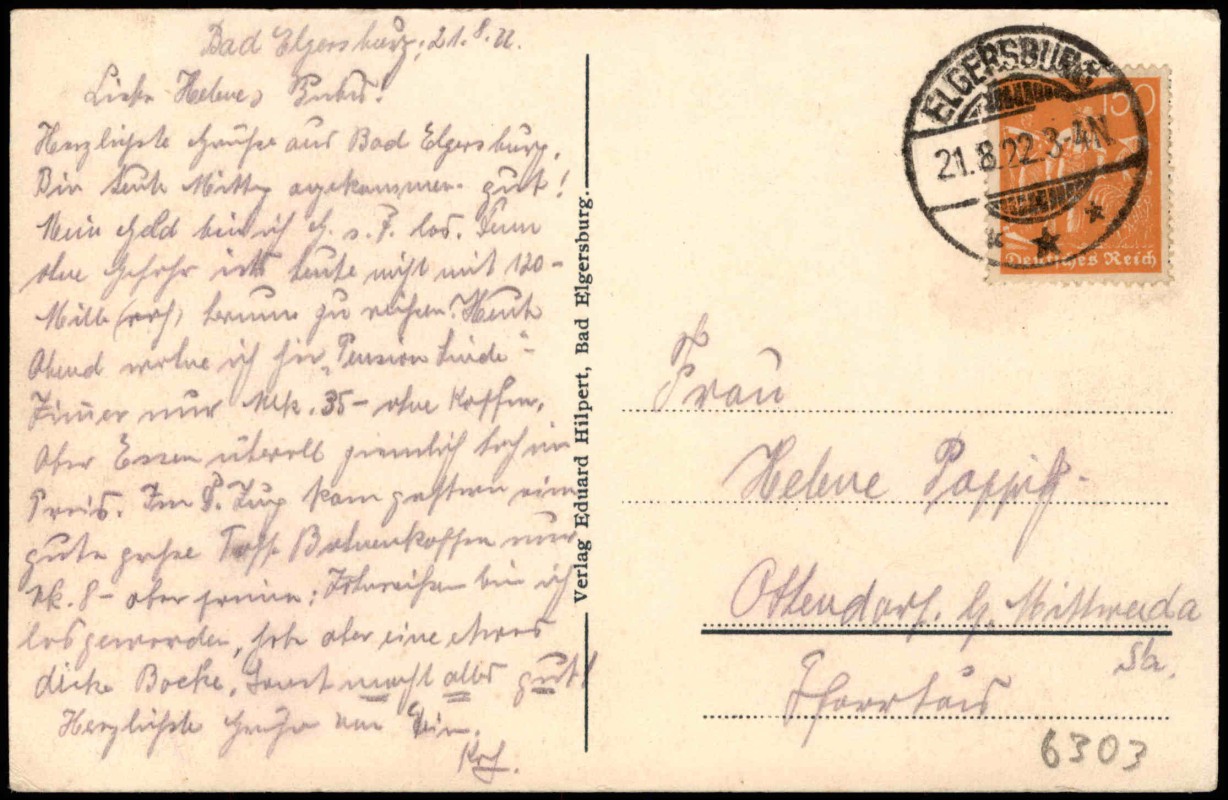 Bad Elgersburg, 21.8.22.
Liebe Helene
Herzlichste Grüße aus Bad Elgersburg.
Bin heute Mittag angekommen. gut!
Mein Geld bin ich los. Denn
ohne Gefahr ists heute nicht mit 120-
Mille herum zu reisen! Heute
Abend wohne ich hier „Pension Linde"-
Zimmer nur Mk. 35- ohne Kaffee.
Aber Essen überall ziemlich hoch im
Preis. Im P. Zug kam gestern eine
gute große Tasse Bohnenkaffee nur
Mk. 8- aber prima: Zahnreißen bin ich
losgeworden, habe aber eine etwas
dicke Backe, sonst macht alles gut!
Herzlichste Grüße von Dein
ELGERSBURG
21.8.22.3-4N
150
Deutsches Reich
Verlag Eduard Hilpert, Bad Elgersburg.
Frau
Helene
Ottendorf b/ Mittweida
Sa.
Pfarrhaus
6303